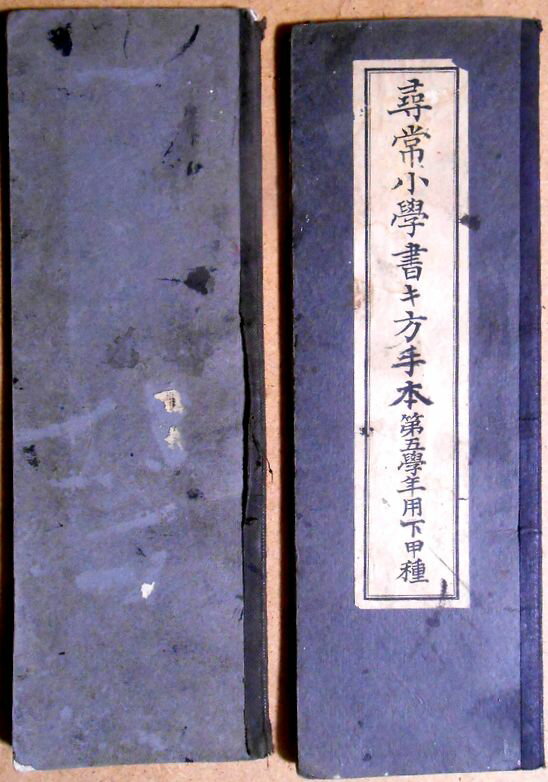 尋常小學書キ方手本第五學年用下甲種